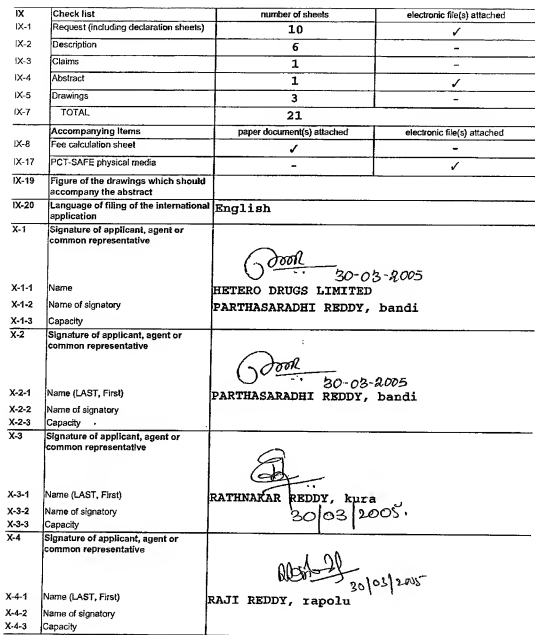 IX Check list number of sheets electronic file(s) attached
IX-1 Request (including declaration sheets) 10 ✓
IX-2 Description 6 -
IX-3 Claims 1 -
IX-4 Abstract 1 ✓
IX-5 Drawings 3 -
IX-7 TOTAL 21
Accompanying Items paper document(s) attached electronic file(s) attached
IX-8 Fee calculation sheet ✓ -
IX-17 PCT-SAFE physical media - ✓
IX-19 Figure of the drawings which should
accompany the abstract
IX-20 Language of filing of the international English
application
X-1 Signature of applicant, agent or
common representative
30-03-2005
X-1-1 Name HETERO DRUGS LIMITED
X-1-2 Name of signatory PARTHASARADHI REDDY, bandi
X-1-3 Capacity
X-2 Signature of applicant, agent or
common representative
30-03-2005
X-2-1 Name (LAST, First) PARTHASARADHI REDDY, bandi
X-2-2 Name of signatory
X-2-3 Capacity
X-3 Signature of applicant, agent or
common representative
X-3-1 Name (LAST, First) RATHNAKAR REDDY, kura
X-3-2 Name of signatory 30/03/2005.
X-3-3 Capacity
X-4 Signature of applicant, agent or
common representative
30/03/2005
X-4-1 Name (LAST, First) RAJI REDDY, rapolu
X-4-2 Name of signatory
X-4-3 Capacity